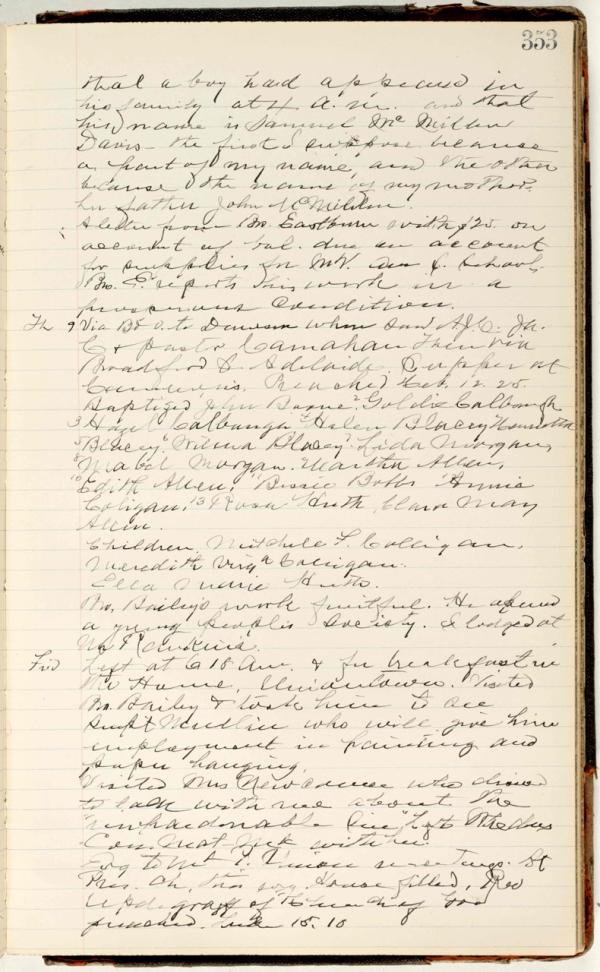 353
that a boy had appeared in
his family at 4 a.m. and that
his name is Samuel McMillan
Davis - the first I suppose because
a part of my name, and the other
because the name of my mother,
her father John McMillan.
A letter from Bro. Eastburn with $25. on
account of bal. due on account
for supplies for Mt. schools.
Bro. E. reports his work in a
prosperous condition.
Th 9 Via B & O. to Dawson when saw
& pastor Carnahan Then via
Bradford & Adelaide. Supper at
Preached Heb. 12.25.
Baptized, John Boone, 2 Goldie Calbaugh
3 Hazel Calbaugh 4 Helen Blacey
5 Blacey, Wilma Blacey, Lida Morgan,
8 Mabel Morgan. 9 Martha Allen,
10 Edith Allen, 11 Bessie Bobbs 12 Annie
Coligan, 13 Rosa Huth, Clara May
Allen.
Children, Mitchele F. Colligan,
Meredith Virga Colligan.
Ella Marie Huth.
Bro. Bailey's work fruitful. He
a young people's society. I lodged at
Mr Rankins.
Frd Left at 6 18 am. & for breakfast in
Mt Home, Uniontown. Visited
Bro. Bailey & took him to see
Supt who will give him
employment in painting and
paper hanging.
Visited Mrs Newcomer who desired
to talk with me about the
"unpardonable sin"
Com. not with her.
meetings. 1st
Pres. Ch, this evg. House filled, Rev
Updegraff of Church of God
preached. Luke 15.10